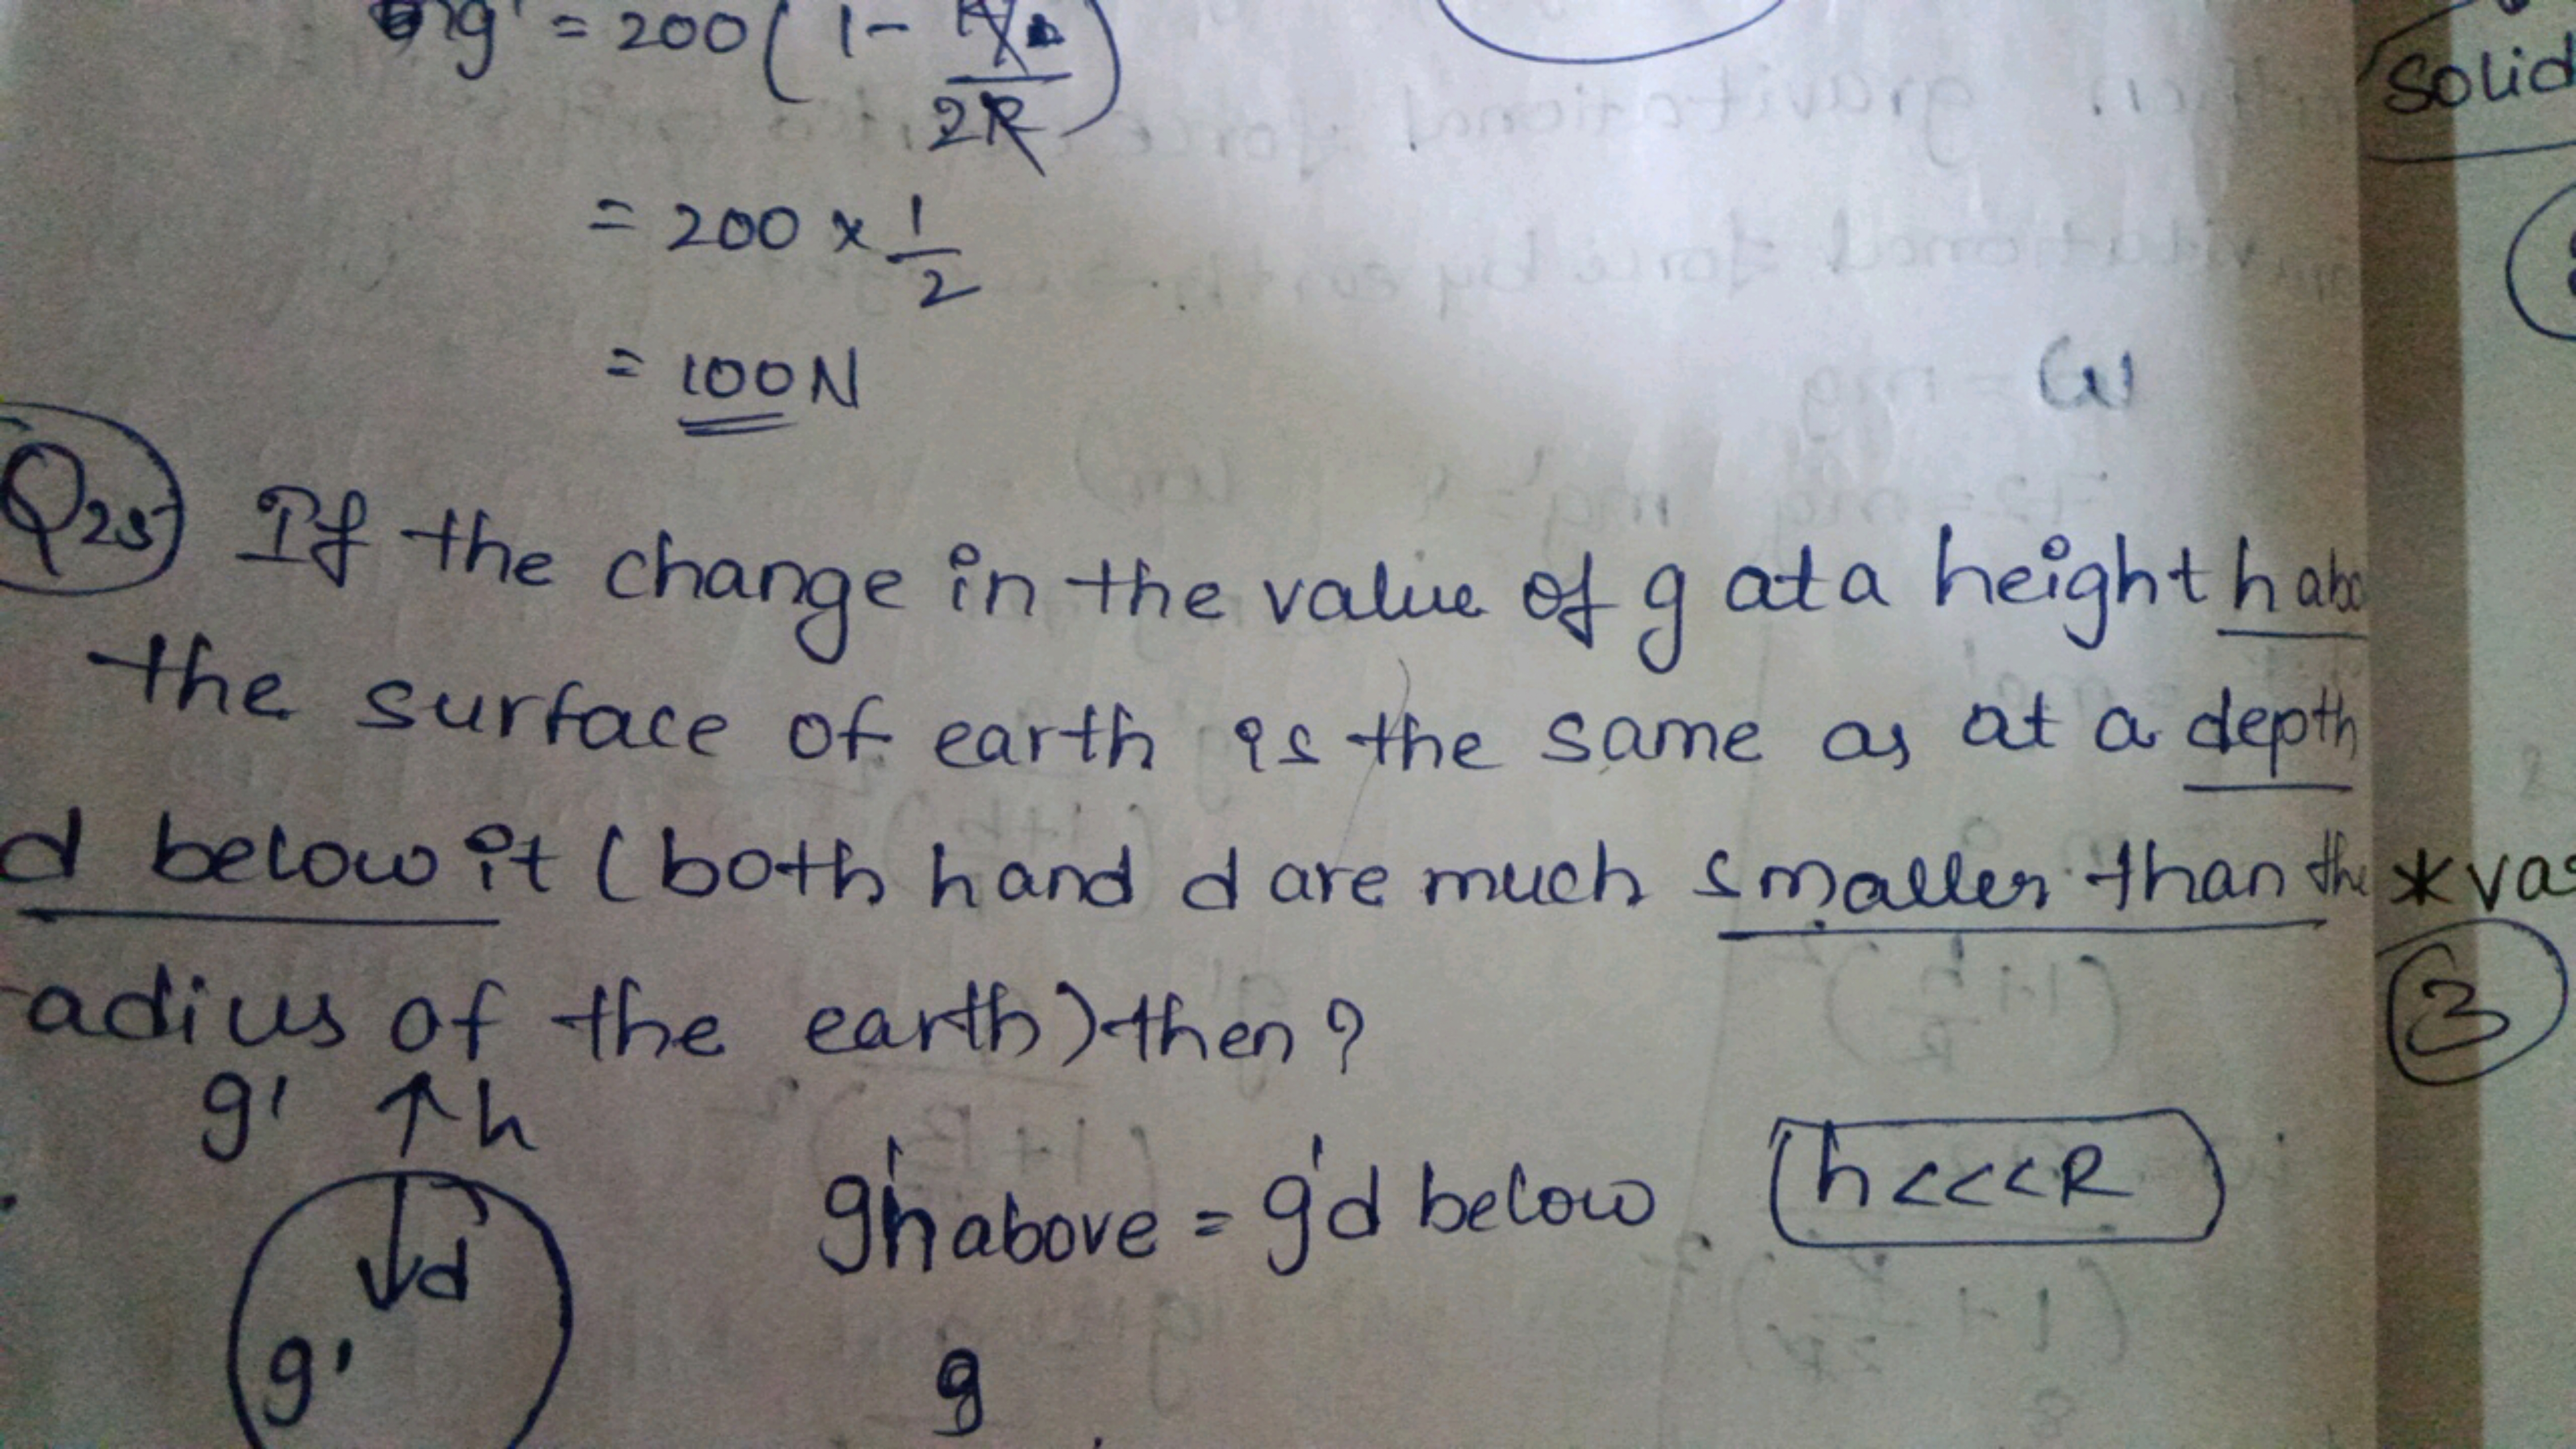 g' = 200 ( 1 -
2R )
= 200 x 1
2
= 100 N
Solid
Q25 If the change in the value of g at a height h abo
the surface of earth is the same as at a depth
d below it (both h and d are much smaller than the
adius of the earth) then ?
* vas
3
g' ↑ h
g'h above = g'd below (h <<< R
d
g'
g